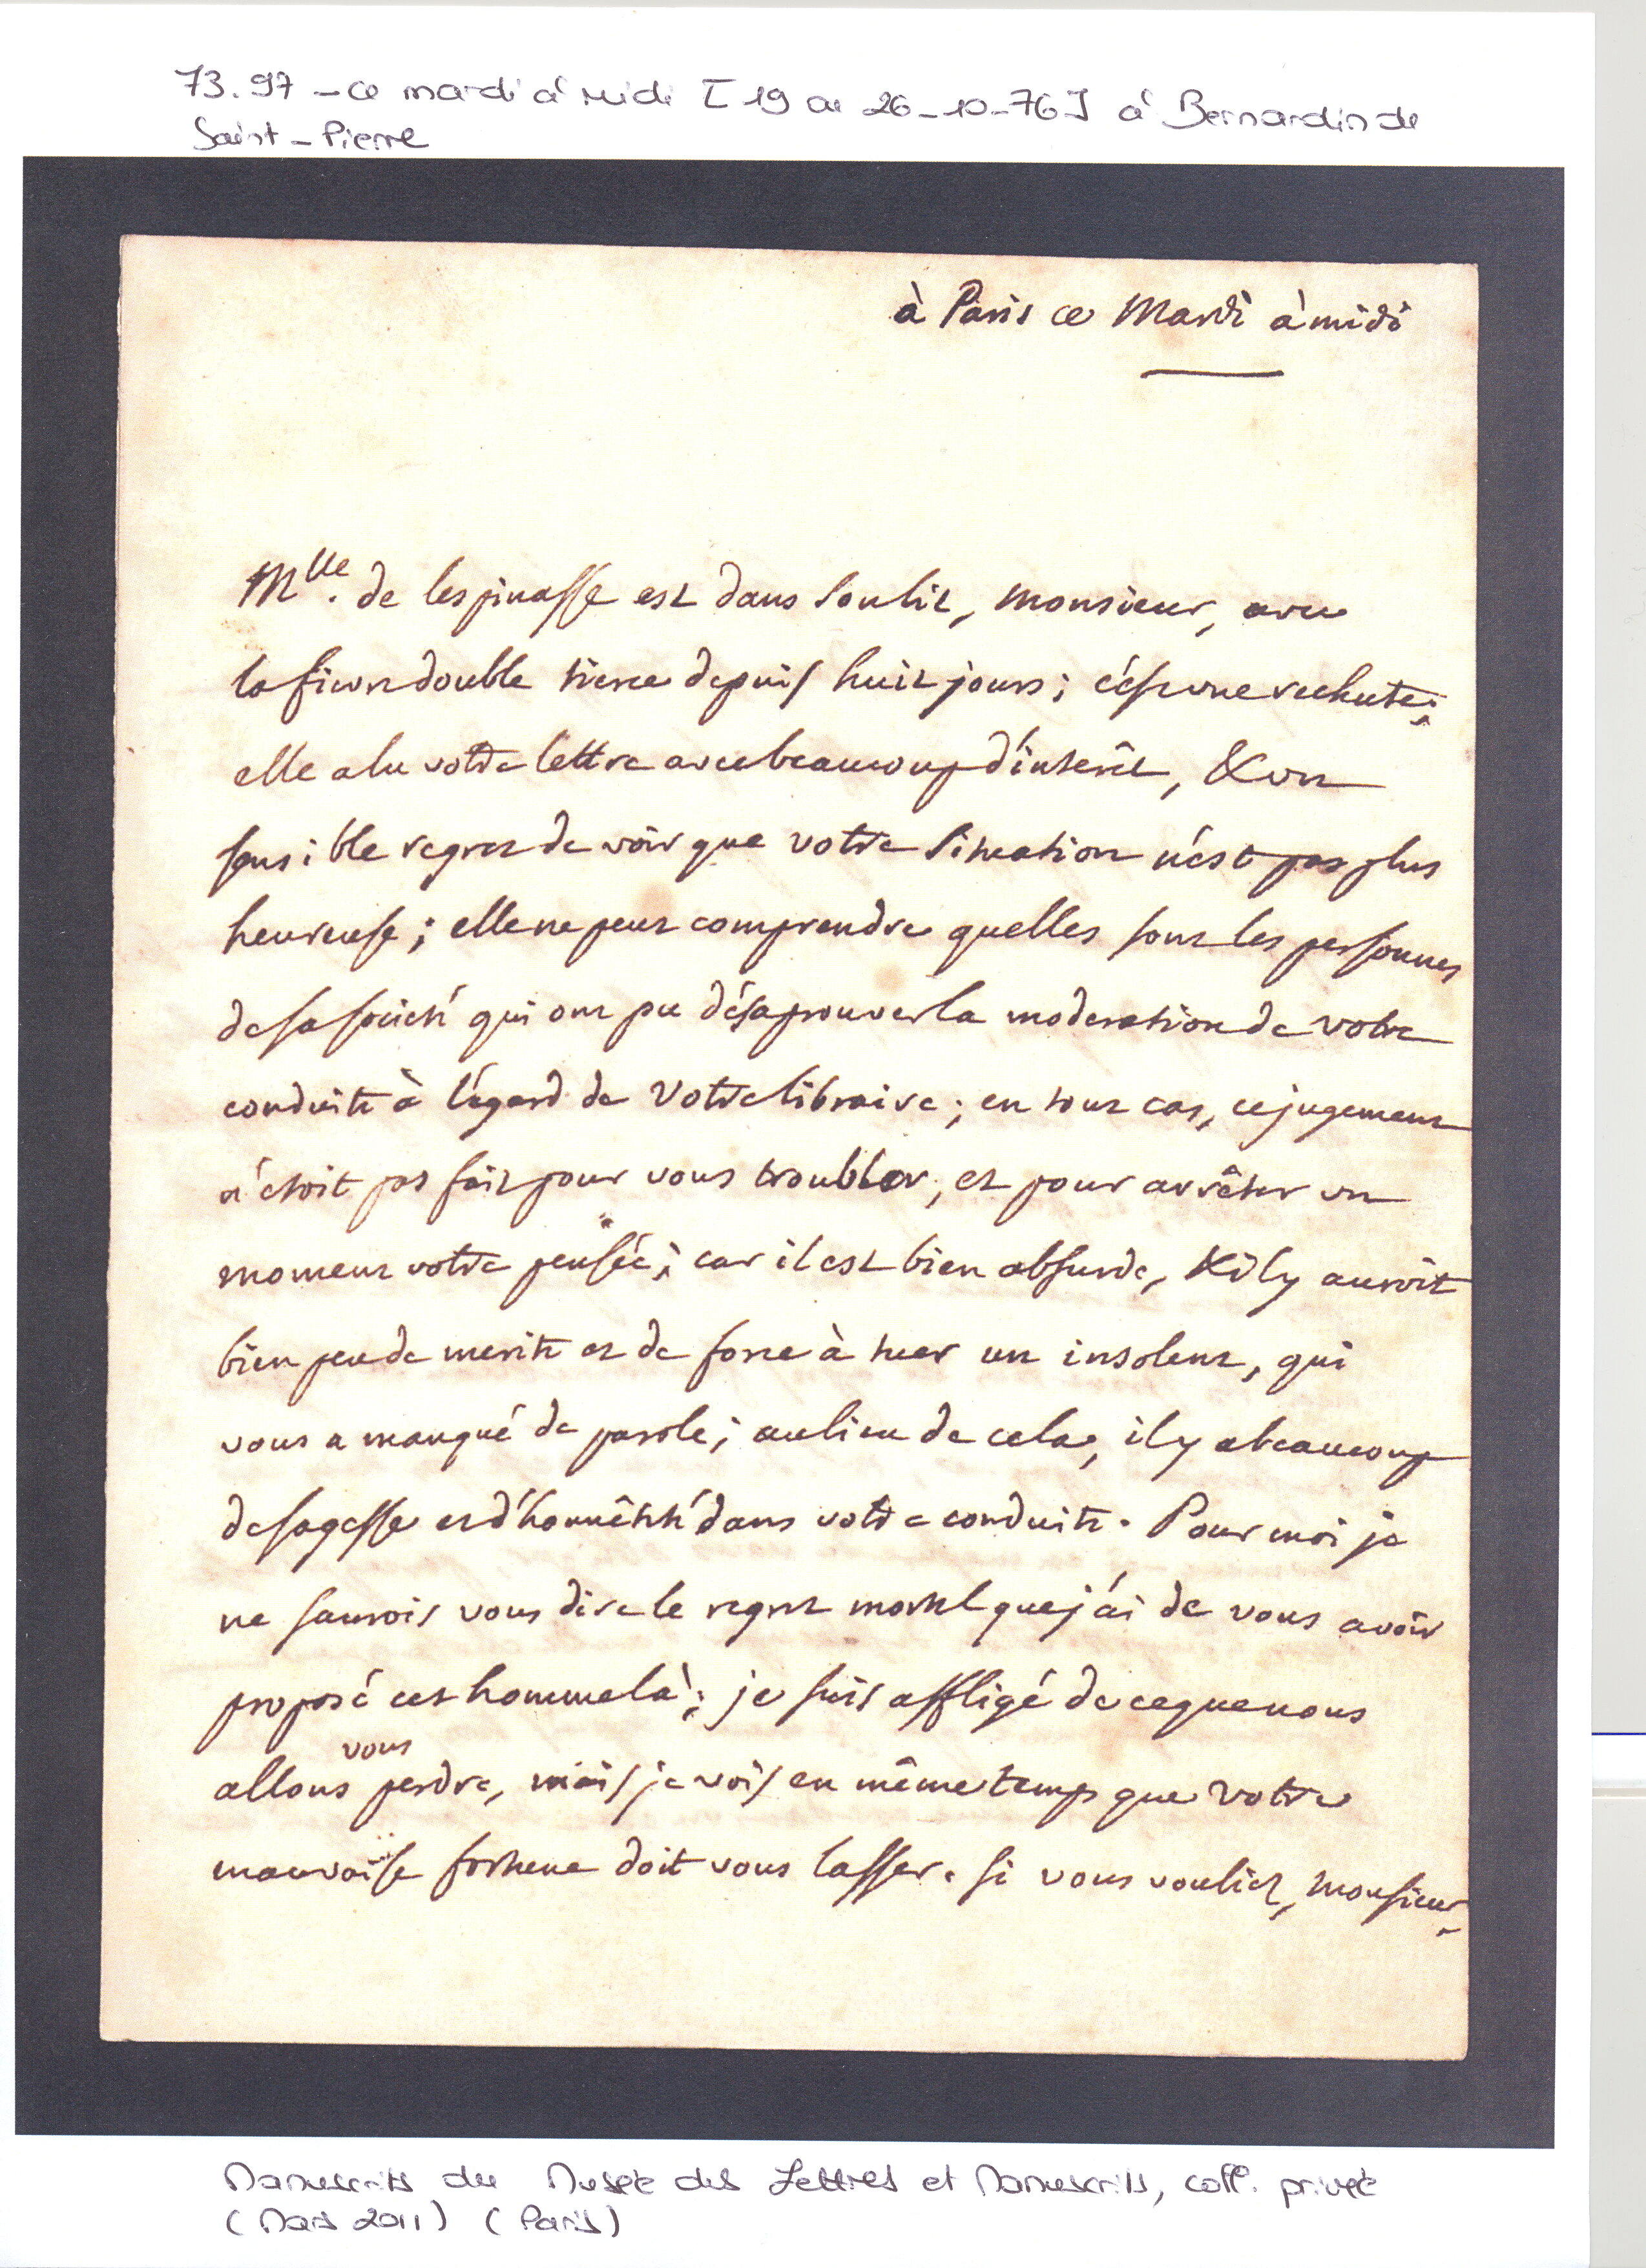 73.97 - ce mardi à midi [19 ou 26-10-76] à Bernardin de
Saint-Pierre
à Paris ce Mardi à midi
Mlle. de lespinasse est dans son lit, monsieur, avec
la fievre double tierce depuis huit jours; c'est une rechute;
elle a lu votre lettre avec beaucoup d'interêt, & un
sensible regret de voir que votre situation n'est pas plus
heureuse; elle ne peut comprendre quelles sont les personnes
de sa société qui ont pu désaprouver la moderation de votre
conduite à l'égard de votre libraire; en tout cas, ce jugement
n'etoit pas fait pour vous troubler, et pour arrêter un
moment votre pensée; car il est bien absurde, & il y auroit
bien peu de merite et de force à tuer un insolent, qui
vous a manqué de parole; au lieu de cela, il y a beaucoup
de sagesse et d'honnêteté dans votre conduite. Pour moi je
ne saurois vous dire le regret mortel que j'ai de vous avoir
proposé cet homme là; je suis affligé de ce que nous
allons vous perdre, mais je vois en même temps que votre
mauvaise fortune doit vous lasser. si vous vouliez, monsieur,
Manuscrits du Musée des Lettres et Manuscrits, coll. privée
(Mars 2011) (Paris)